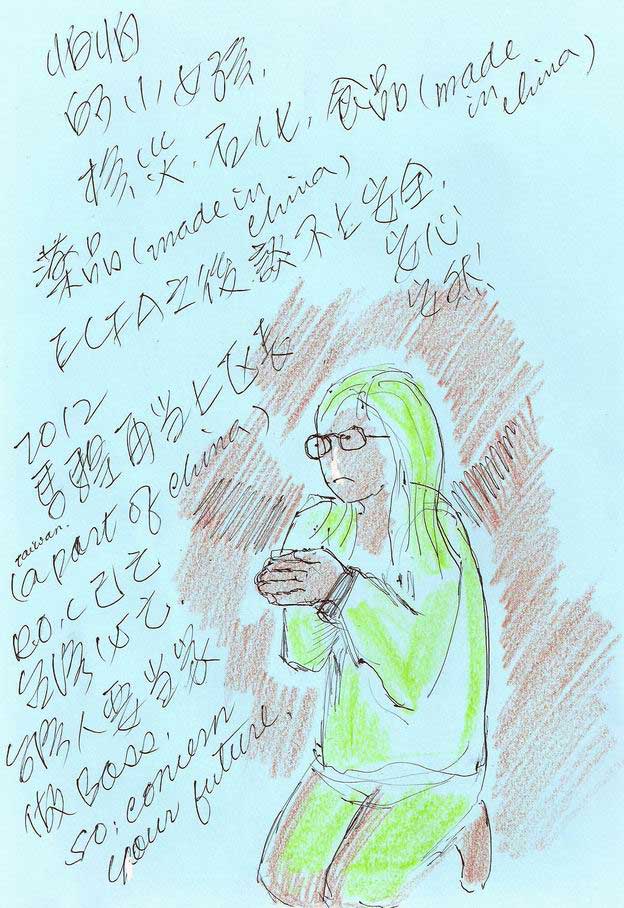 怕怕
的小女孩,
核災.石化,食品(made
in china)
藥品(made in
china)
ECFA之後談不上安全,
安心
安然!
2012
馬騜再当上区長
taiwan.
(a part of china)
R.O.C已亡
台湾
台湾人要当家
做BOSS.
SO: concern
your future.